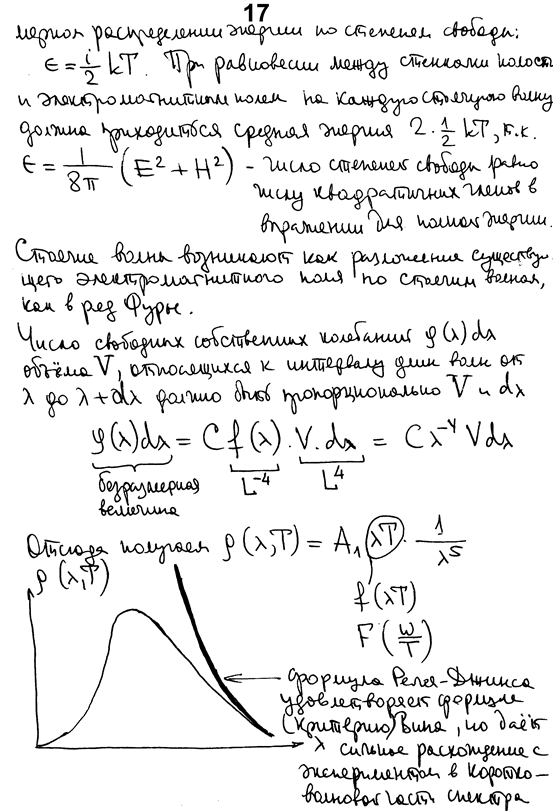 17
мерном распределении энергии по степеням свободы:
ε = i/2 kT. При равновесии между стенками полости
и электромагнитным полем на каждую стоячую волну
должна приходиться средняя энергия 2·1/2 kT, т.к.
ε = 1/8π (E² + H²) - число степеней свободы равно
числу квадратичных членов в
выражении для полной энергии.
Стоячие волны возникают как разложение существу-
щего электромагнитного поля по стоячим волнам,
как в ряд Фурье.
Число свободных собственных колебаний φ(λ)dλ
объёма V, относящихся к интервалу длин волн от
λ до λ+dλ должно быть пропорционально V и dλ
φ(λ)dλ = C f(λ) · V·dλ = C λ⁻⁴ V dλ
безразмерная L⁻⁴ L⁴
величина
Отсюда получаем ρ(λ,T) = A₁ λT · 1/λ⁵
ρ(λ,T)
f(λT)
F(ω/T)
формула Релея-Джинса
удовлетворяет формуле
(критерию) Вина, но даёт
λ сильное расхождение с
экспериментом в коротко-
волновой части спектра